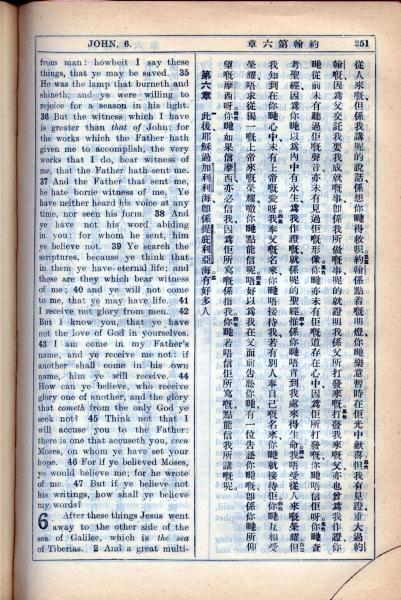 JOHN, 6.
約翰第六章
251
from man: howbeit I say these
things, that ye may be saved. 35
He was the lamp that burneth and
shineth; and ye were willing to
rejoice for a season in his light.
36 But the witness which I have
is greater than that of John; for
the works which the Father hath
given me to accomplish, the very
works that I do, bear witness of
me, that the Father hath sent me.
37 And the Father that sent me,
he hath borne witness of me. Ye
have neither heard his voice at any
time, nor seen his form. 38 And
ye have not his word abiding
in you: for whom he sent, him
ye believe not. 39 Ye search the
scriptures, because ye think that
in them ye have eternal life; and
these are they which bear witness
of me; 40 and ye will not come
to me, that ye may have life. 41
I receive not glory from men. 42
But I know you, that ye have
not the love of God in yourselves.
43 I am come in my Father's
name, and ye receive me not: if
another shall come in his own
name, him ye will receive. 44
How can ye believe, who receive
glory one of another, and the glory
that cometh from the only God ye
seek not? 45 Think not that I
will accuse you to the Father:
there is one that accuseth you, even
Moses, on whom ye have set your
hope. 46 For if ye believed Moses,
ye would believe me; for he wrote
of me. 47 But if ye believe not
his writings, how shall ye believe
my words?
6 After these things Jesus went
away to the other side of the
sea of Galilee, which is the sea
of Tiberias. 2 And a great multi-
從人來嘅、但係我講呢的說話、係想你哋得救。約翰係點着嘅明燈、你哋樂意暫時在佢光中歡喜。但我有見證重大過約
翰嘅、因爲父交託我要我成就嘅事、卽係我所做嘅事、呢的就證明我係父所打發來嘅。打發我嘅父、亦曾爲我作證、你
哋從前未有聽過佢嘅聲音、亦未有見過佢嘅形像。你哋亦未有佢嘅道存在心中、因爲佢所打發嘅、你哋唔信佢呀。你哋查
考聖經、因爲你哋以爲內中有永生、爲我作證嘅、就係呢的聖經。惟係你哋唔肯到我處來得生命。我唔受從人來嘅榮耀。但
我知到在你哋心中未有上帝嘅愛呀。我奉父嘅名來、你哋唔接待我、若有別人奉自己嘅名來、你哋就接待佢。你哋互相受
榮耀、唔求從獨一嘅上帝來嘅榮耀、噉你哋點能信呢。唔好以爲我在父面前告訟你哋、有一位告訟你哋嘅、卽係你哋所仰
望嘅摩西呀。你哋如果信摩西、亦必信我、因爲佢所寫嘅係指我。你哋若唔信佢所寫嘅、點能信我所講嘅呢。
第六章 此後、耶穌過加利利海、卽係提庇利亞海。有好多人